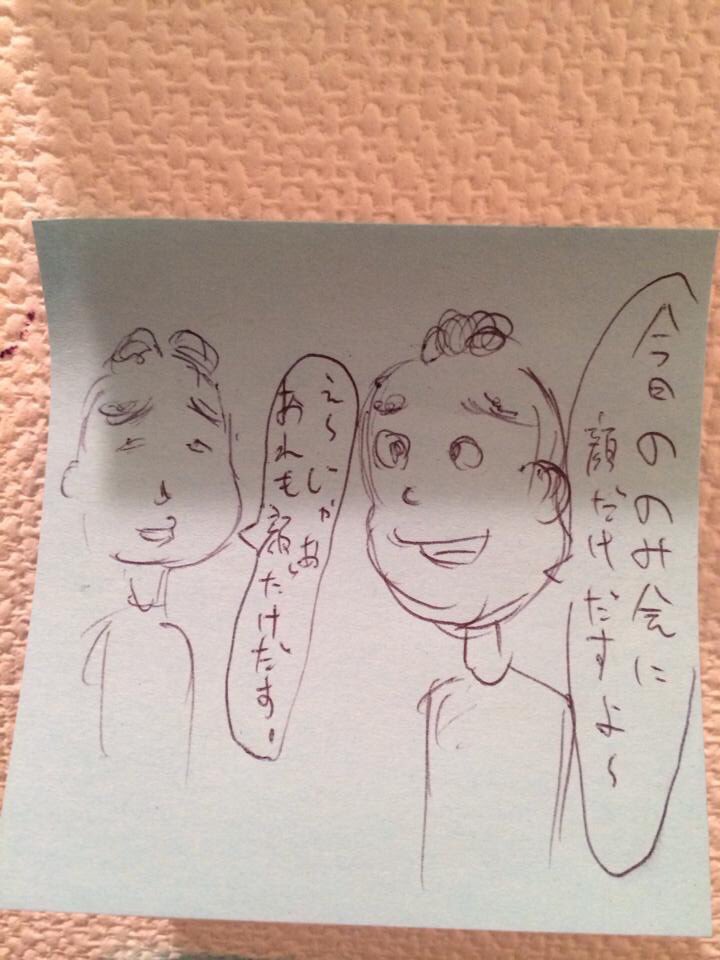 今日ののみ会に
顔だけだすよ〜
え〜じゃあ
おれも顔だけだす。